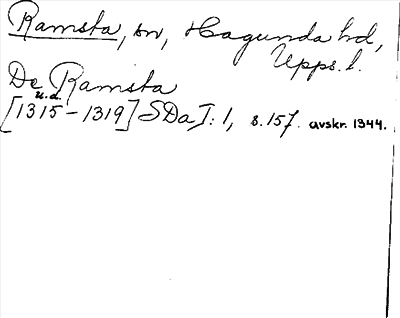 Ramsta, sn, Hagunda hd,
Upps. l.
De Ramsta
u.d.
[1315-1319] SDaI: 1, s. 157. avskr. 1344.